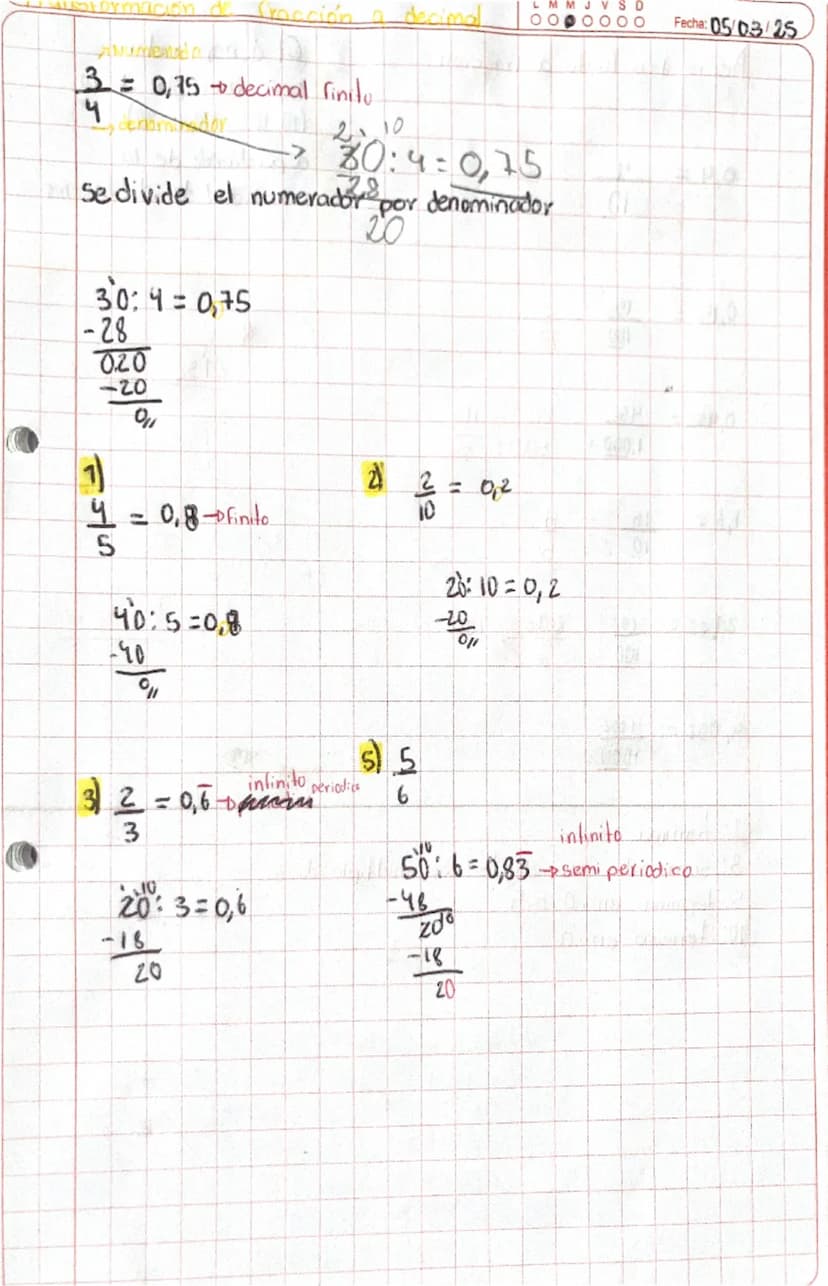 Transformación de fracción a decimal
L M M J V S D
Fecha: 05/03/25
numerado
3/4 = 0,75 → decimal finito
→ denominador
30 : 4 = 0,75
-28
20
se divide el numerador por denominador
30 : 4 = 0,75
-28
020
-20
0//
1)
4/5 = 0,8 → finito
40 : 5 = 0,8
-40
0//
2) 2/10 = 0,2
20 : 10 = 0,2
-20
0//
3) 2/3 = 0,6̅ → infinito periodico
20 : 3 = 0,6
-18
20
5) 5/6
infinito
50 : 6 = 0,83̅ → semi periodico
-48
20
-18
20